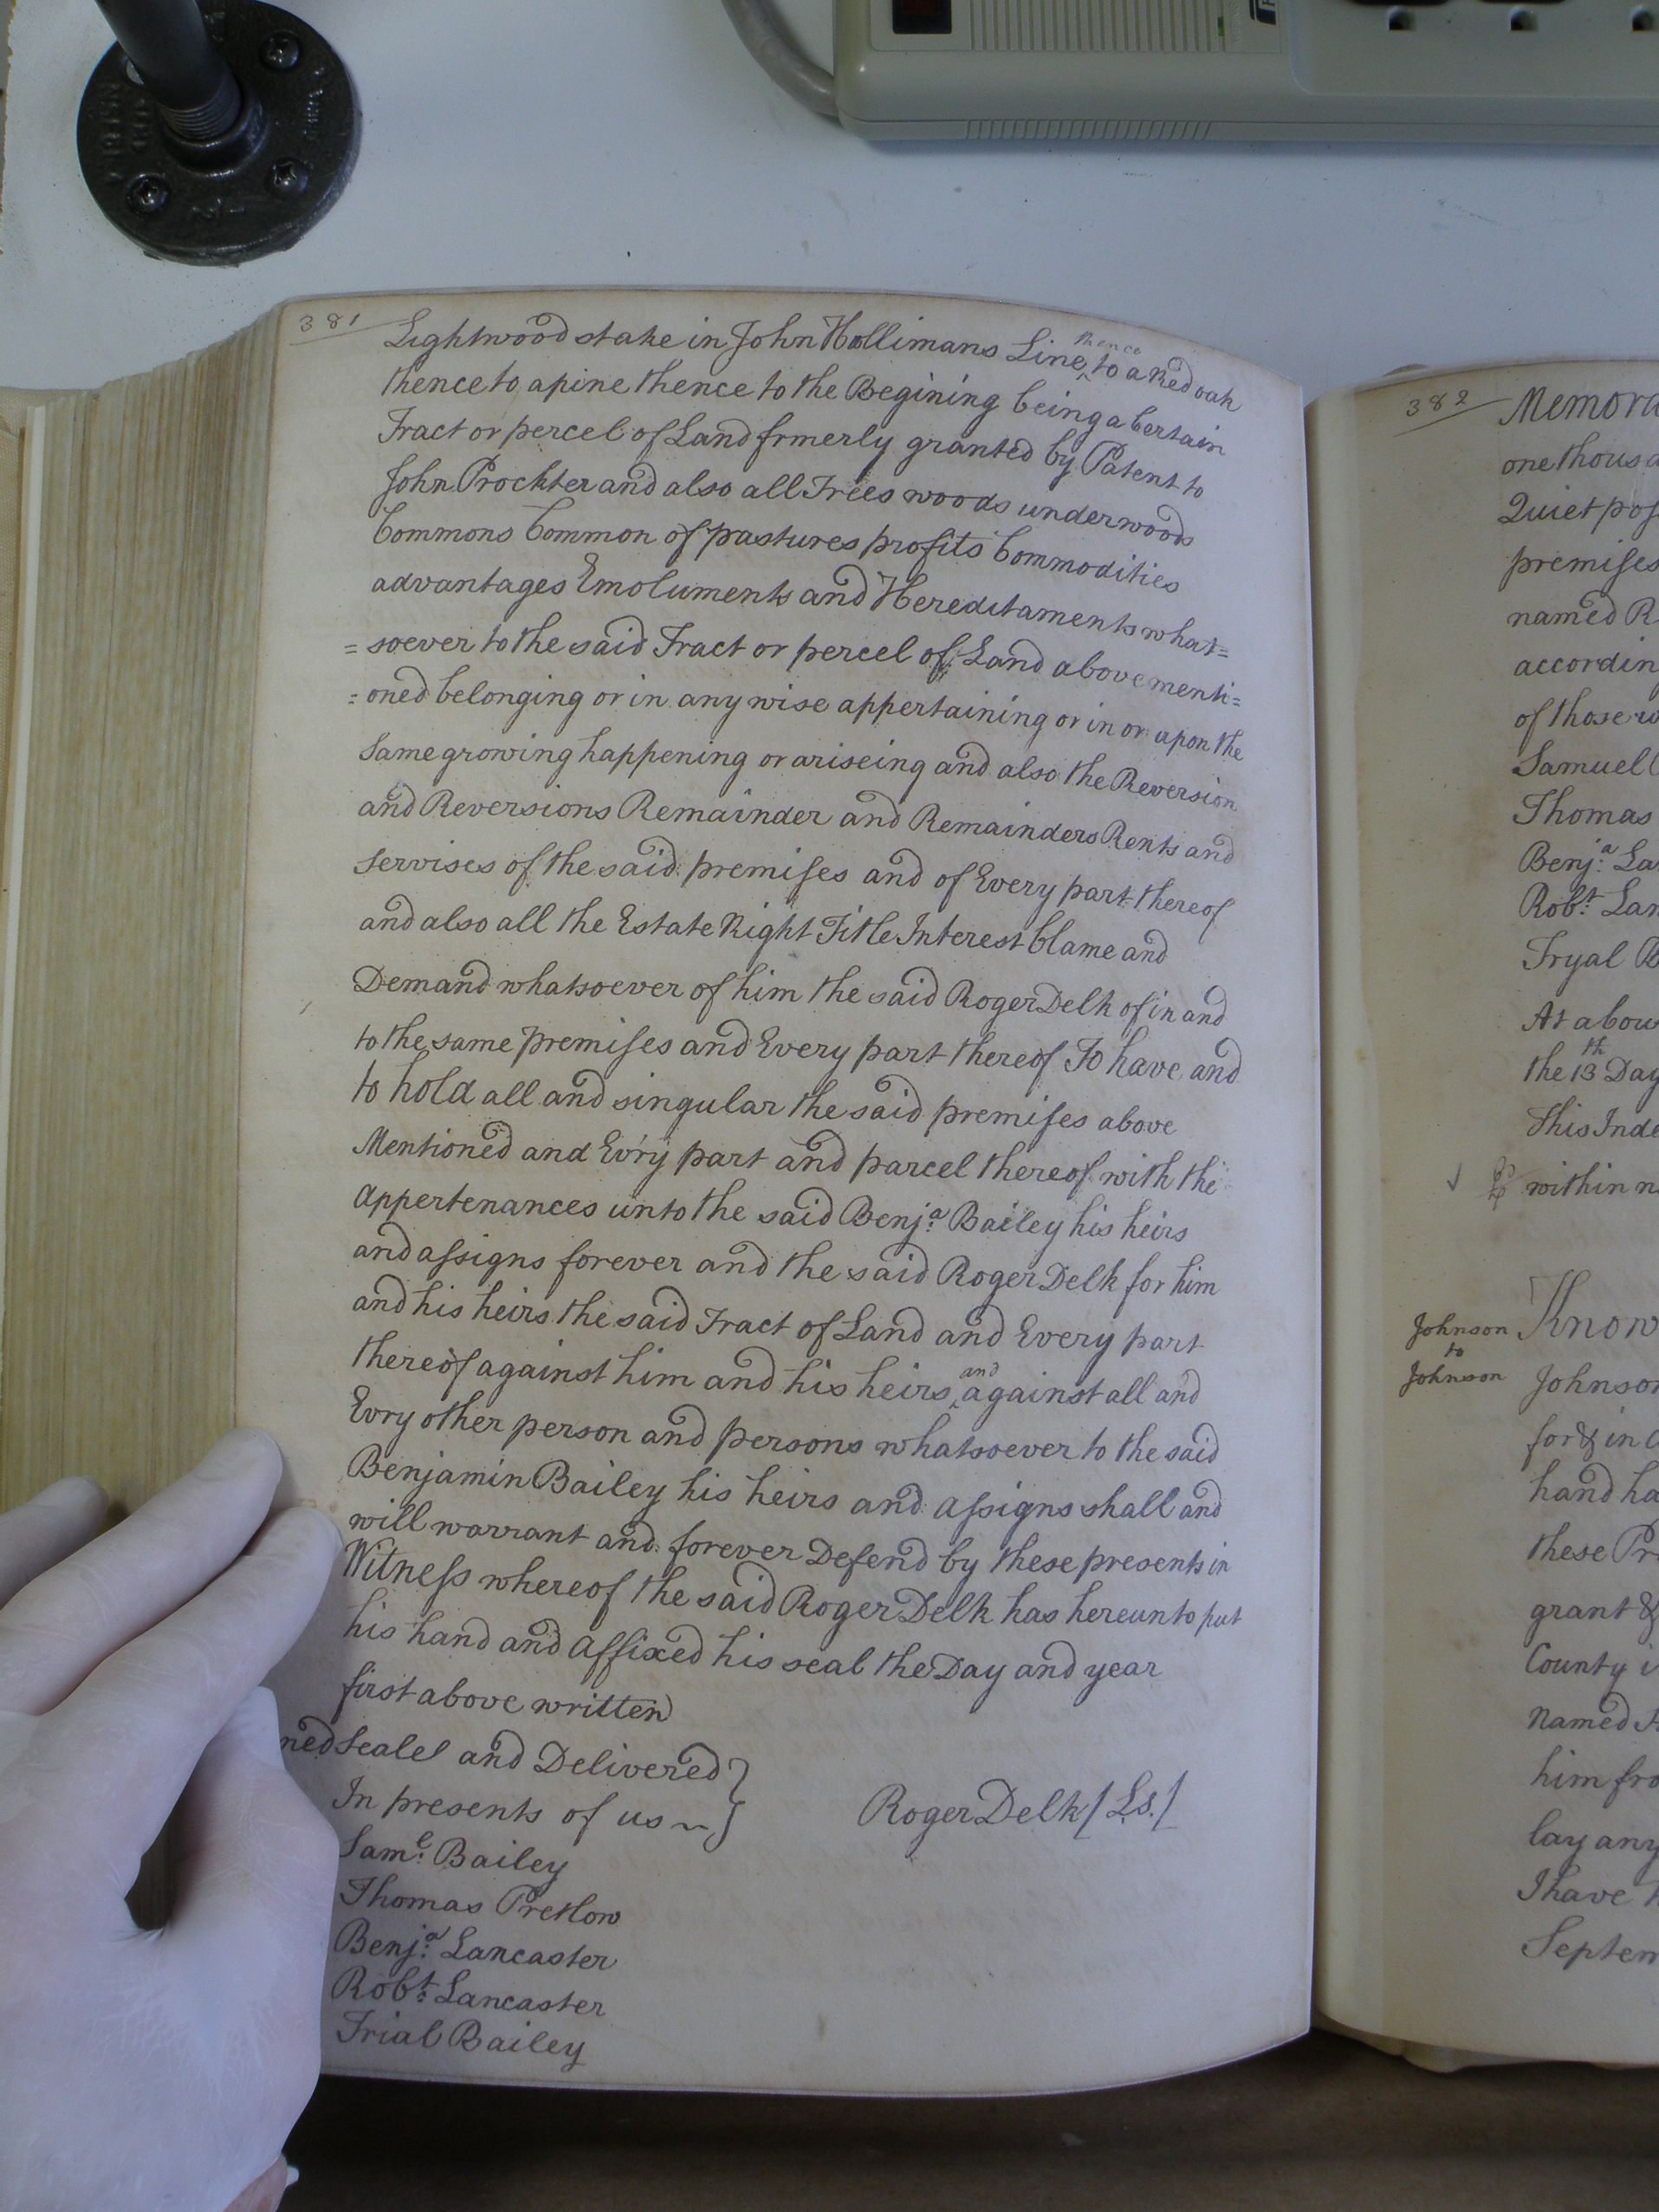 381
Lightwood stake in John Hollimans Line thence to a Red oak
thence to a pine thence to the Begining being a Certain
Tract or percel of Land frmerly granted by Patent to
John Prockter and also all Trees woods underwoods
Commons Common of pastures profits Commodities
advantages Emoluments and Hereditaments what=
=soever to the said Tract or percel of Land above menti=
=oned belonging or in any wise appertaining or in or upon the
Same growing happening or ariseing and also the Reversion
and Reversions Remainder and Remainders Rents and
Servises of the said premises and of Every part thereof
and also all the Estate Right Title Interest Clame and
Demand whatsoever of him the said Roger Delk of in and
to the same premises and Every part thereof To have and
to hold all and singular the said premises above
Mentioned and Ev'ry part and parcel thereof with the
Appertenances unto the said Benja. Bailey his heirs
and assigns forever and the said Roger Delk for him
and his heirs the said Tract of Land and Every part
thereof against him and his heirs and against all and
Evry other person and persons whatsoever to the said
Benjamin Bailey his heirs and assigns shall and
will warrant and forever Defend by these presents in
Witness whereof the said Roger Delk has hereunto put
his hand and affixed his seal the Day and year
first above written
ned Seale and Delivered }
In presents of us ~ }
Roger Delk [Ls.]
Saml. Bailey
Thomas Pretlow
Benja. Lancaster
Robt. Lancaster
Trial Bailey
382
Memora
one thousa
Quiet pos
premises
named R
accordin
of those w
Samuel
Thomas
Benja. La
Robt. Lan
Tryal B
At a Cour
the 13th Day
This Inde
within n
Johnson
to
Johnson
Know
Johnson
for & in C
hand ha
these Pr
grant &
County i
Named
him fro
lay any
I have h
Septem